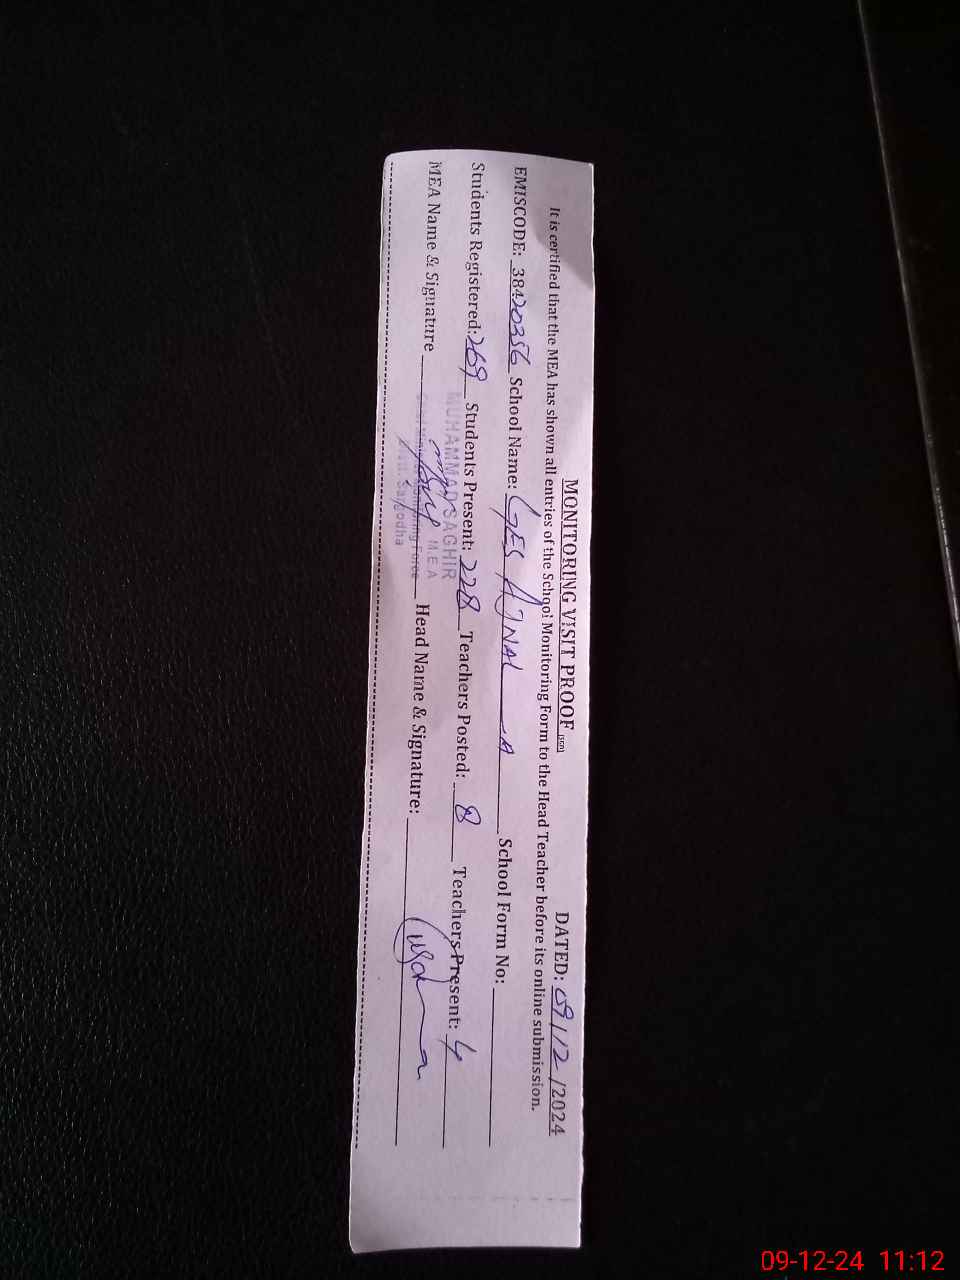 MONITORING VISIT PROOF DATED: 09/12/2024
It is certified that the MEA has shown all entries of the School Monitoring Form to the Head Teacher before its online submission.
EMISCODE: 38420356 School Name: GES AJNALA School Form No:
Students Registered: 269 Students Present: 228 Teachers Posted: 8 Teachers Present: 4
MUHAMMAD SAGHIR
M.E.A
MEA Name & Signature Head Name & Signature:
Monitoring Force
Sargodha
09-12-24 11:12